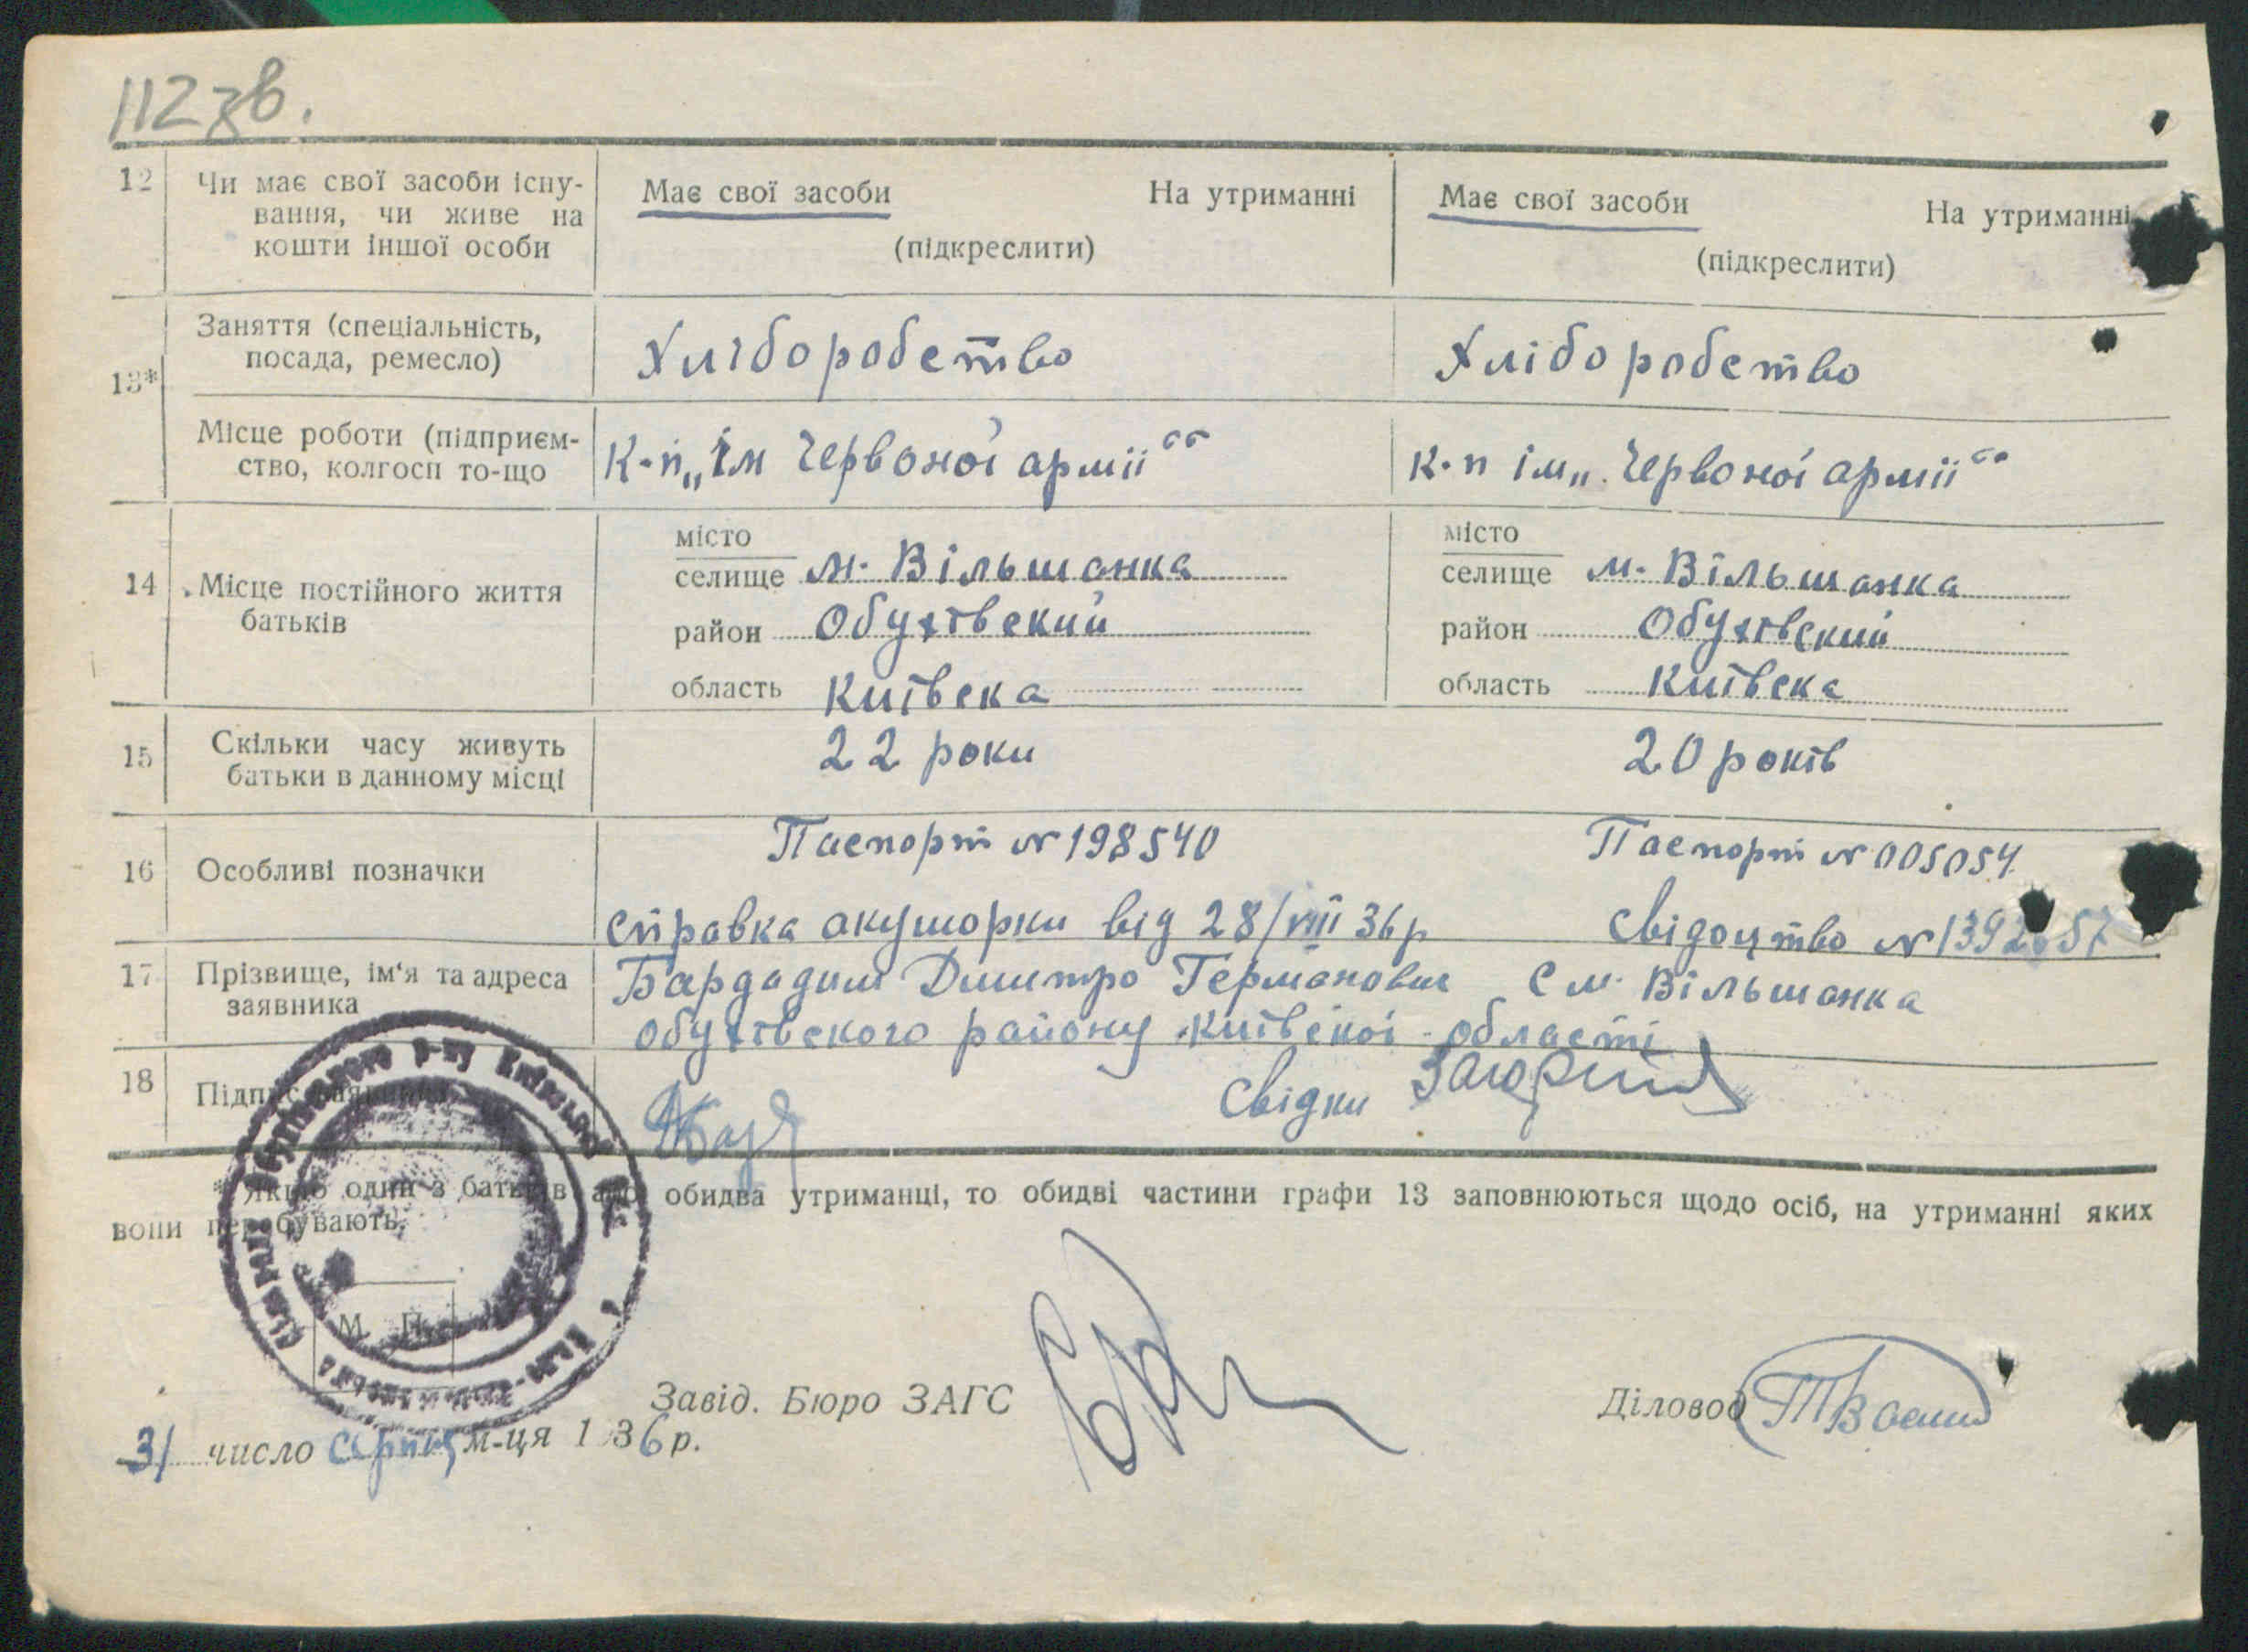 112 зв.
12 Чи має свої засоби існу- Має свої засоби На утриманні Має свої засоби На утриманні
вання, чи живе на
кошти іншої особи (підкреслити) (підкреслити)
13* Заняття (спеціальність,
посада, ремесло) Хліборобство Хліборобство
Місце роботи (підприєм-
ство, колгосп то-що К-п „Ім Червоної армії“ к-п ім „Червоної армії“
14 Місце постійного життя
батьків
місто місто
селище м. Вільшанка селище м. Вільшанка
район Обухівский район Обухівский
область Київска область Київска
15 Скільки часу живуть
батьки в данному місці 22 роки 20 років
16 Особливі позначки Паспорт № 198540 Паспорт № 005054
справка акушорки від 28/VIII 36р Свідоцтво №
17 Прізвище, ім‘я та адреса
заявника Бардадим Дмитро Германович с м. Вільшанка
обухівского району Київскої області
18 Підпис Свідки
* Якщо один з батьків або обидва утриманці, то обидві частини графи 13 заповнюються щодо осіб, на утриманні яких
вони перебувають.
М. П.
Завід. Бюро ЗАГС Діловод
31 число серпня м-ця 1 36 р.